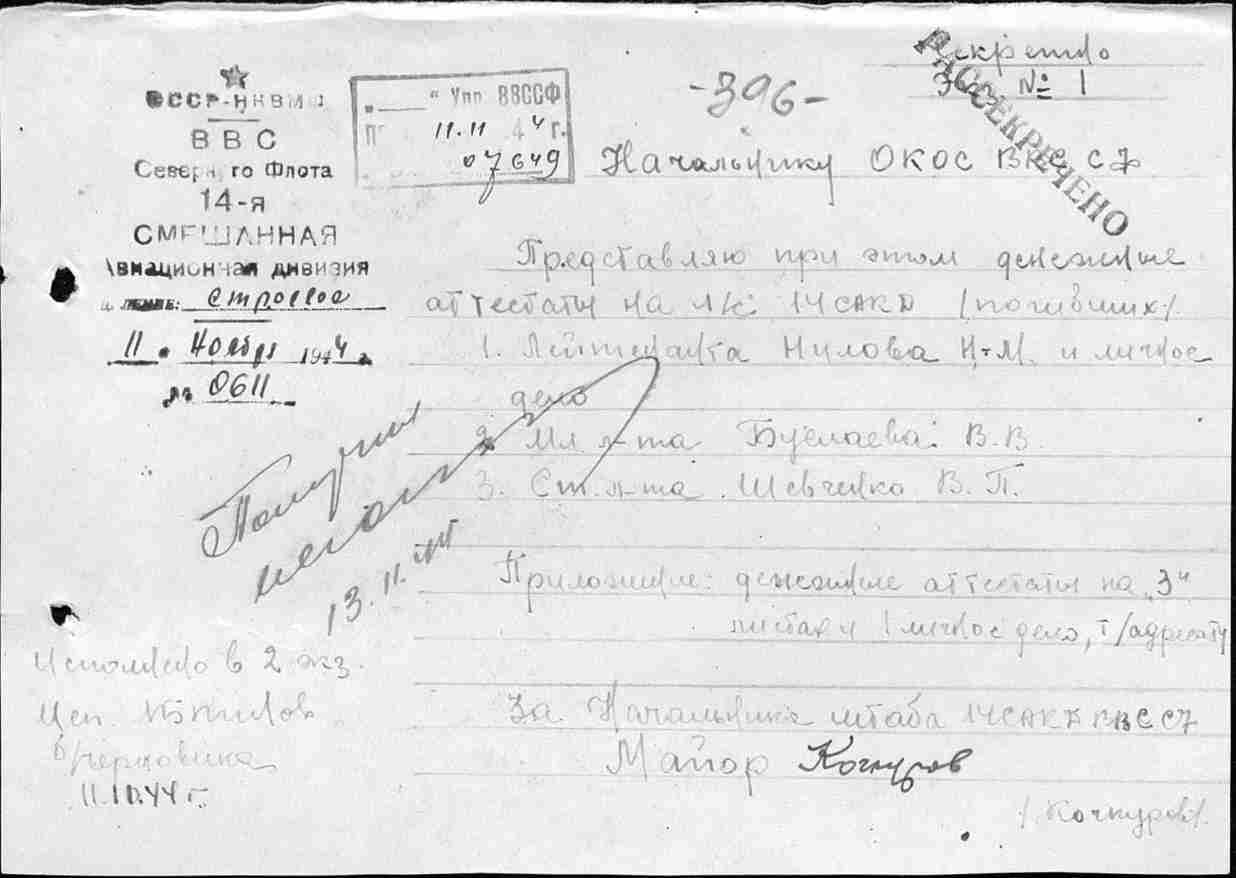 СССР-НКВМФ
ВВС
Северного Флота
14-я
СМЕШАННАЯ
Авиационная дивизия
строевое
11. Ноября 1944 г.
№ 0611
„ “ Упр ВВССФ
11.11 44 г.
07649
-396-
Секретно
Экз № 1
РАССЕКРЕЧЕНО
Начальнику ОКОС ВВС СФ
Представляю при этом денежные
аттестаты на л/с 14САКД /погибших/.
1. Лейтенанта Нилова Н.М. и личное
дело
2. Мл л-та Буслаева В.В.
3. Ст. л-та Шевченко В.П.
Приложение: денежные аттестаты на „3“
листах и 1 личное дело, т/адресату
За Начальника штаба 14САКД ВВС СФ
Майор Кочкуров
/Кочкуров/.
Получил
13.11.44г
Исполнено в 2 экз.
Исп.
11.10.44 г.